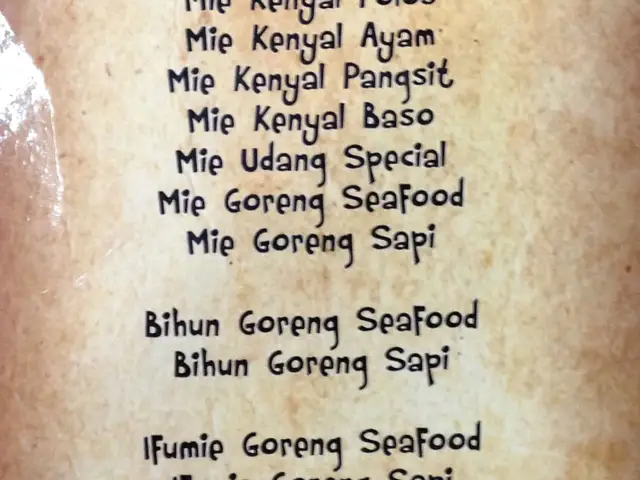 Mie Kenyal Polos
Mie Kenyal Ayam
Mie Kenyal Pangsit
Mie Kenyal Baso
Mie Udang Special
Mie Goreng SeaFood
Mie Goreng Sapi
Bihun Goreng SeaFood
Bihun Goreng Sapi
IFumie Goreng SeaFood
IFumie Goreng Sapi